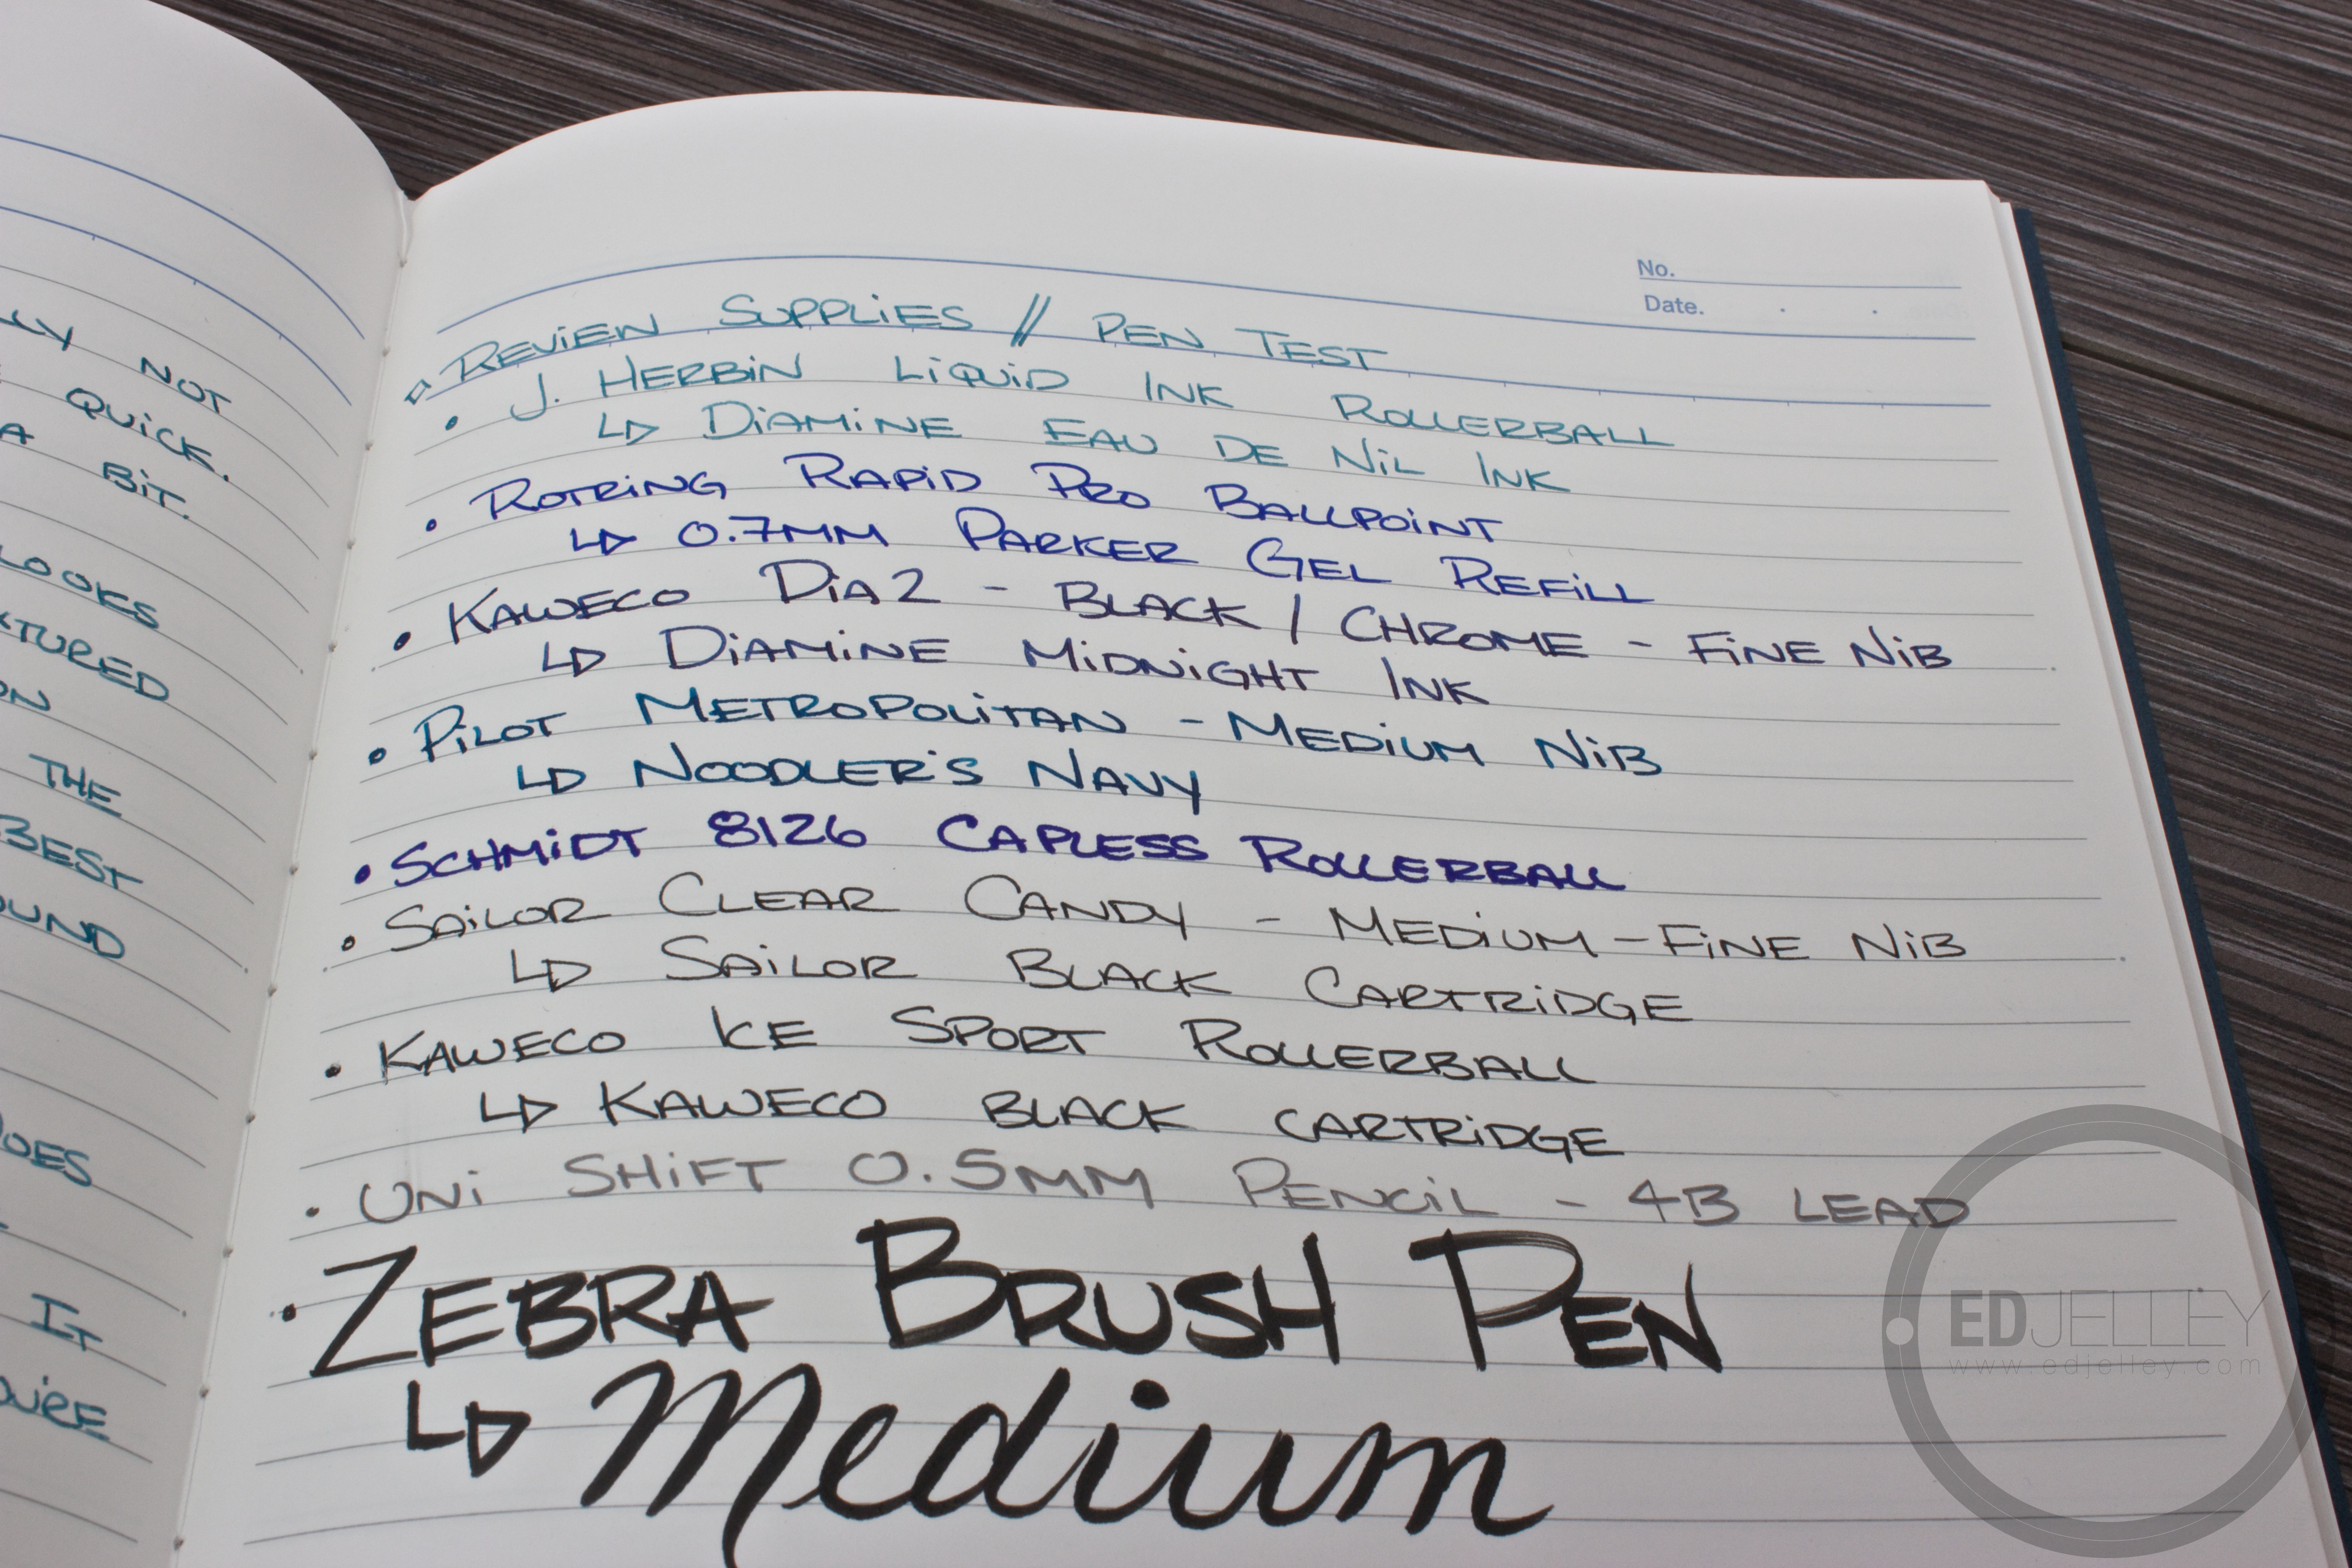 NOT
QUICK.
A
BIT.
LOOKS
ON
THE
BEST
IT
No.
Date. . .
REVIEW SUPPLIES // PEN TEST
• J. HERBIN LIQUID INK ROLLERBALL
↳ DIAMINE EAU DE NIL INK
• ROTRING RAPID PRO BALLPOINT
↳ 0.7MM PARKER GEL REFILL
• KAWECO DIA2 - BLACK / CHROME - FINE NIB
↳ DIAMINE MIDNIGHT INK
• PILOT METROPOLITAN - MEDIUM NIB
↳ NOODLER'S NAVY
• SCHMIDT 8126 CAPLESS ROLLERBALL
• SAILOR CLEAR CANDY - MEDIUM-FINE NIB
↳ SAILOR BLACK CARTRIDGE
• KAWECO ICE SPORT ROLLERBALL
↳ KAWECO BLACK CARTRIDGE
• UNI SHIFT 0.5MM PENCIL - 4B LEAD
• ZEBRA BRUSH PEN
↳ Medium
EDJELLEY
www.edjelley.com